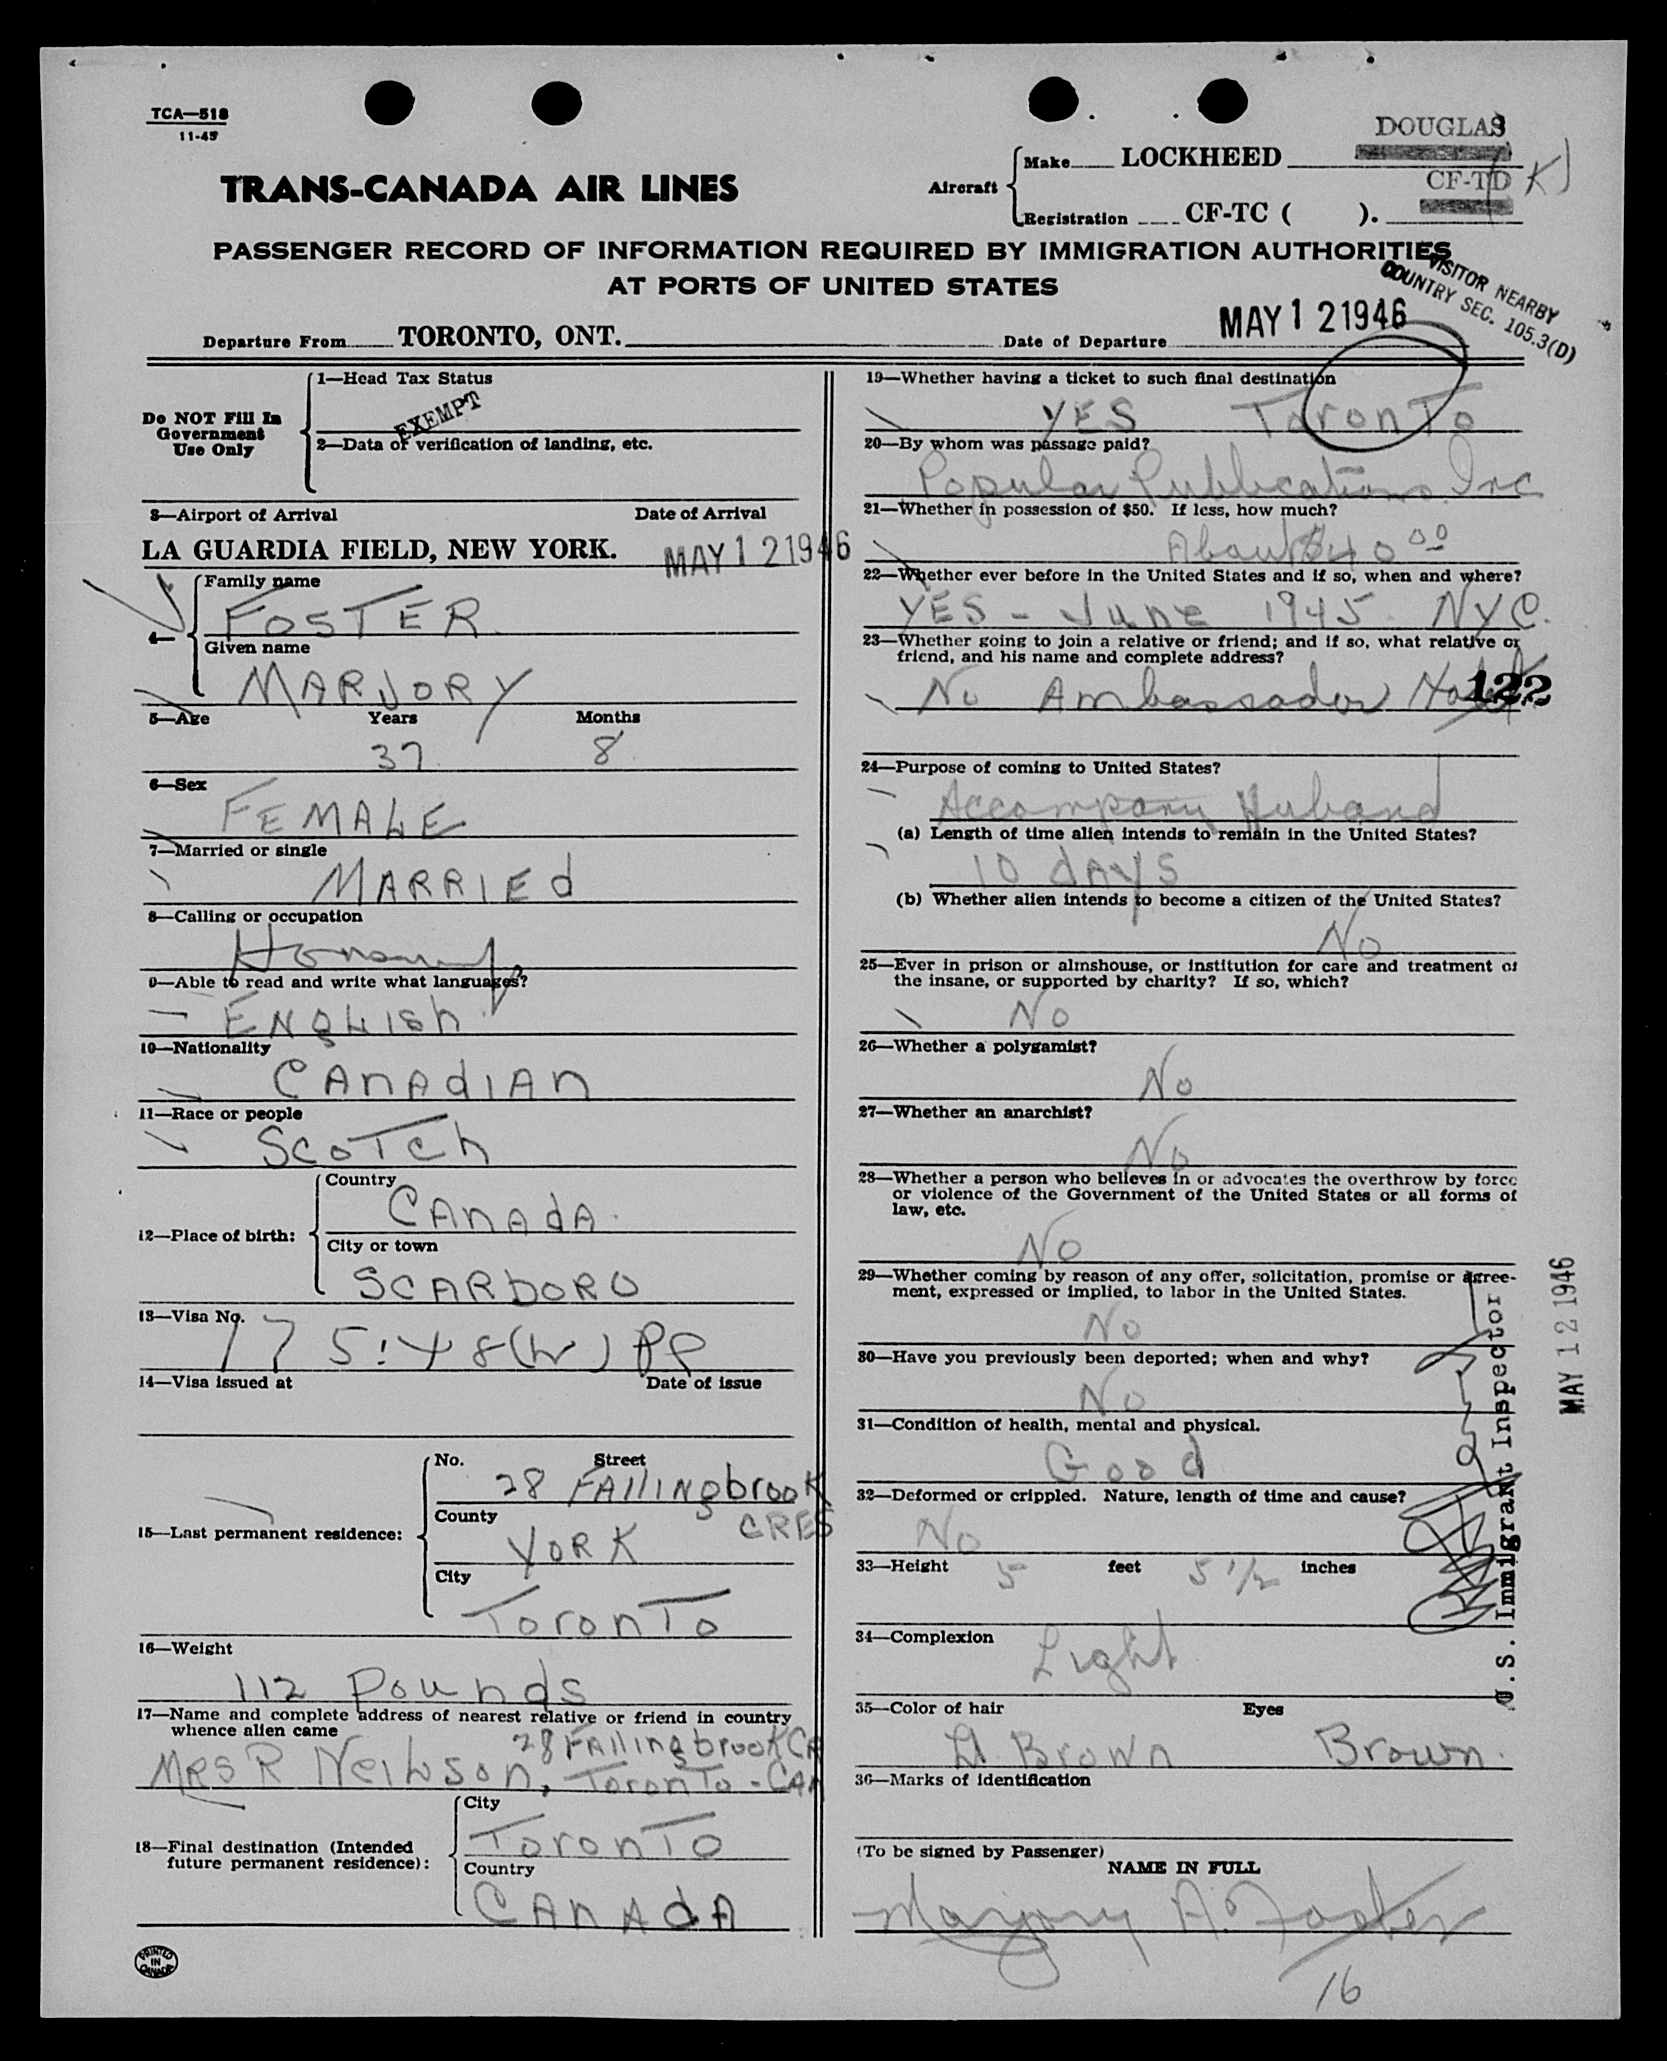 TCA—518
11-45
TRANS-CANADA AIR LINES
Aircraft
Make LOCKHEED
DOUGLAS
Registration CF-TC ( ).
CF-TD (K)
PASSENGER RECORD OF INFORMATION REQUIRED BY IMMIGRATION AUTHORITIES
AT PORTS OF UNITED STATES
VISITOR NEARBY
COUNTRY SEC. 105.3(D)
Departure From TORONTO, ONT.
Date of Departure MAY 12 1946
Do NOT Fill In
Government
Use Only
1—Head Tax Status
EXEMPT
2—Data of verification of landing, etc.
3—Airport of Arrival Date of Arrival
LA GUARDIA FIELD, NEW YORK. MAY 12 1946
4—
Family name
FOSTER
Given name
MARJORY
5—Age Years Months
37 8
6—Sex
FEMALE
7—Married or single
MARRIEd
8—Calling or occupation
9—Able to read and write what languages?
ENgLish
10—Nationality
CAnAdIAn
11—Race or people
ScoTch
12—Place of birth:
Country
CAnAdA
City or town
SCARboRO
13—Visa No.
14—Visa issued at Date of issue
15—Last permanent residence:
No. Street
28 FAllINgbrooK
CRES
County
YORK
City
ToronTo
16—Weight
112 Pounds
17—Name and complete address of nearest relative or friend in country
whence alien came
28 FAllingbrook CR
MRS R NeiLson, ToronTo - CAN
18—Final destination (Intended
future permanent residence):
City
ToronTo
Country
CAnAdA
PRINTED
IN
CANADA
19—Whether having a ticket to such final destination
YES ToronTo
20—By whom was passage paid?
Popular Publications Inc
21—Whether in possession of $50. If less, how much?
About $40 00
22—Whether ever before in the United States and if so, when and where?
YES - June 1945 NYC.
23—Whether going to join a relative or friend; and if so, what relative or
friend, and his name and complete address?
No Ambassador Hotel
122
24—Purpose of coming to United States?
Accompany Huband
(a) Length of time alien intends to remain in the United States?
10 dAys
(b) Whether alien intends to become a citizen of the United States?
No
25—Ever in prison or almshouse, or institution for care and treatment of
the insane, or supported by charity? If so, which?
No
26—Whether a polygamist?
No
27—Whether an anarchist?
No
28—Whether a person who believes in or advocates the overthrow by force
or violence of the Government of the United States or all forms of
law, etc.
No
29—Whether coming by reason of any offer, solicitation, promise or agree-
ment, expressed or implied, to labor in the United States.
No
30—Have you previously been deported; when and why?
No
31—Condition of health, mental and physical.
Good
32—Deformed or crippled. Nature, length of time and cause?
No
33—Height 5 feet 5 1/2 inches
34—Complexion
Light
35—Color of hair Eyes
Lt. Brown Brown
36—Marks of identification
(To be signed by Passenger)
NAME IN FULL
Marjory A. Foster
16
U.S. Immigrant Inspector
MAY 12 1946